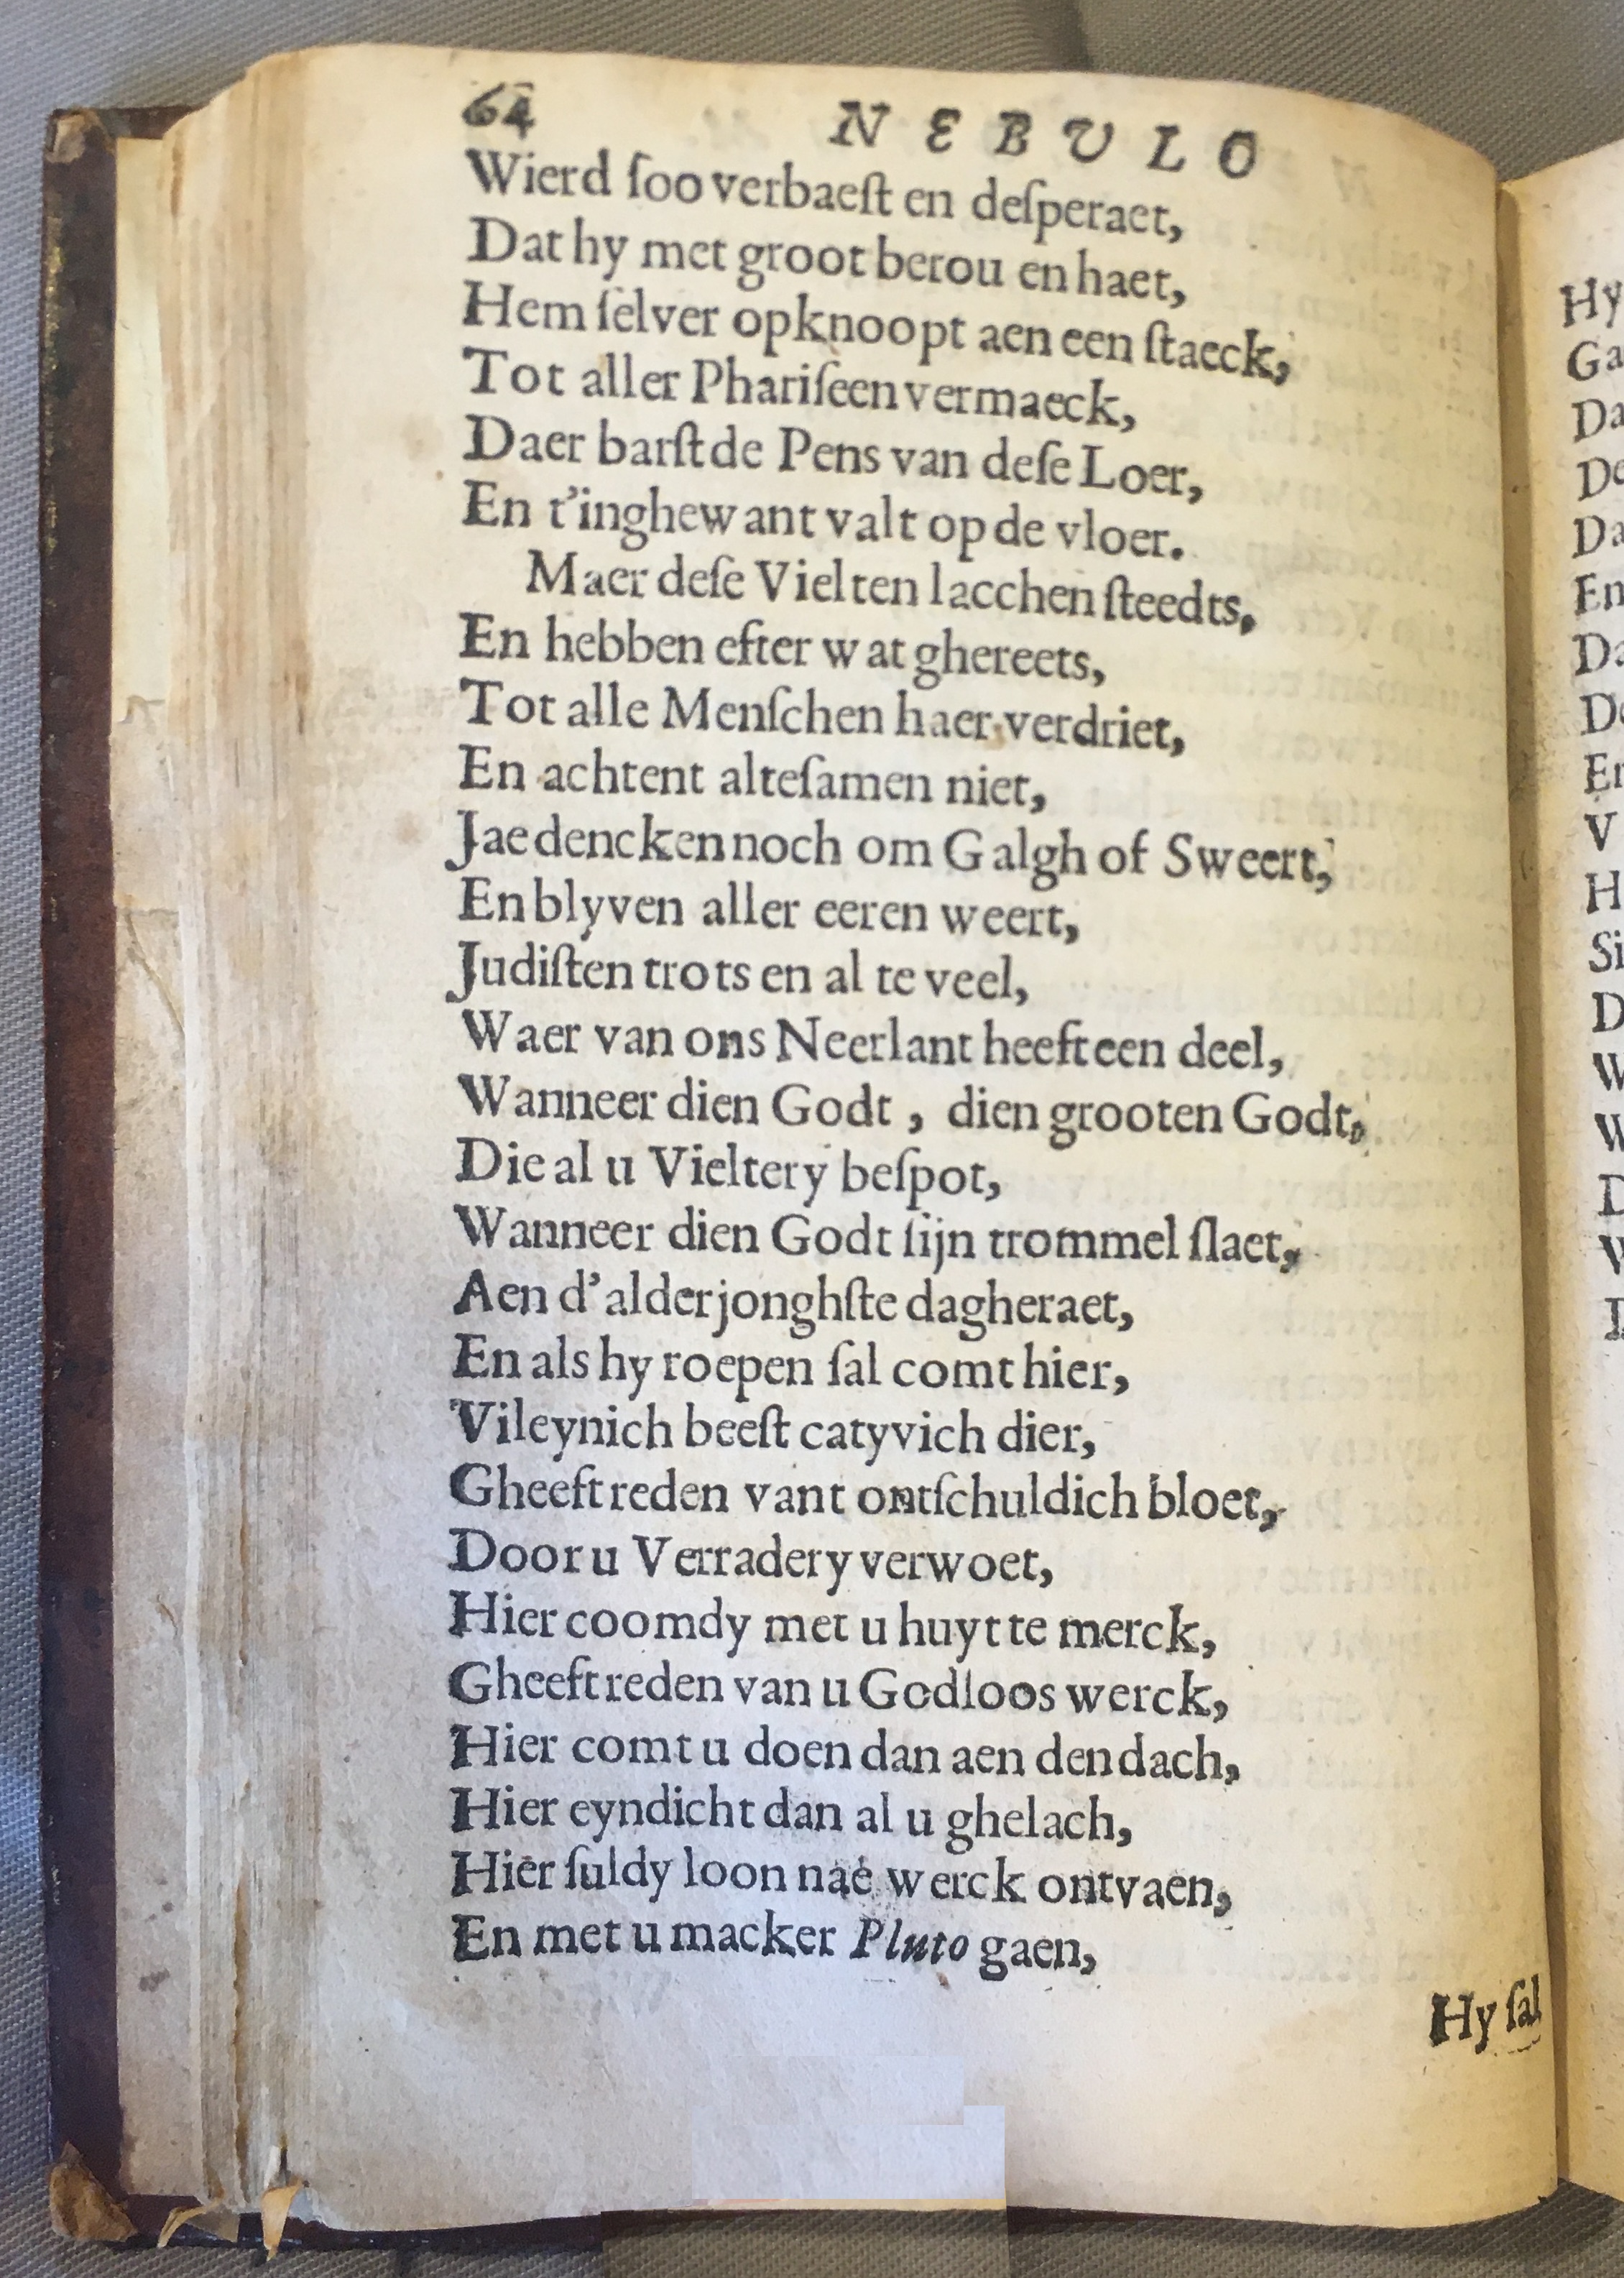 64 NEBULO
Wierd ſoo verbaeſt en deſperaet,
Dat hy met groot berou en haet,
Hem ſelver opknoopt aen een ſtaeck,
Tot aller Phariſeen vermaeck,
Daer barſt de Pens van deſe Loer,
En t'inghewant valt op de vloer.
Maer deſe Vielten lacchen ſteedts,
En hebben efter wat ghereets,
Tot alle Menſchen haer verdriet,
En achtent alteſamen niet,
Jae dencken noch om Galgh of Sweert,
En blyven aller eeren weert,
Judiſten trots en al te veel,
Waer van ons Neerlant heeft een deel,
Wanneer dien Godt, dien grooten Godt,
Die al u Vieltery beſpot,
Wanneer dien Godt ſijn trommel ſlaet,
Aen d'alderjonghſte dagheraet,
En als hy roepen ſal comt hier,
Vileynich beeſt catyvich dier,
Gheeft reden vant ontſchuldich bloet,
Door u Verradery verwoet,
Hier coomdy met u huyt te merck,
Gheeft reden van u Godloos werck,
Hier comt u doen dan aen den dach,
Hier eyndicht dan al u ghelach,
Hier ſuldy loon nae werck ontvaen,
En met u macker Pluto gaen,
Hy ſal
Hy
Ga
Da
De
Da
En
Da
De
En
V
H
Si
D
W
W
D
V